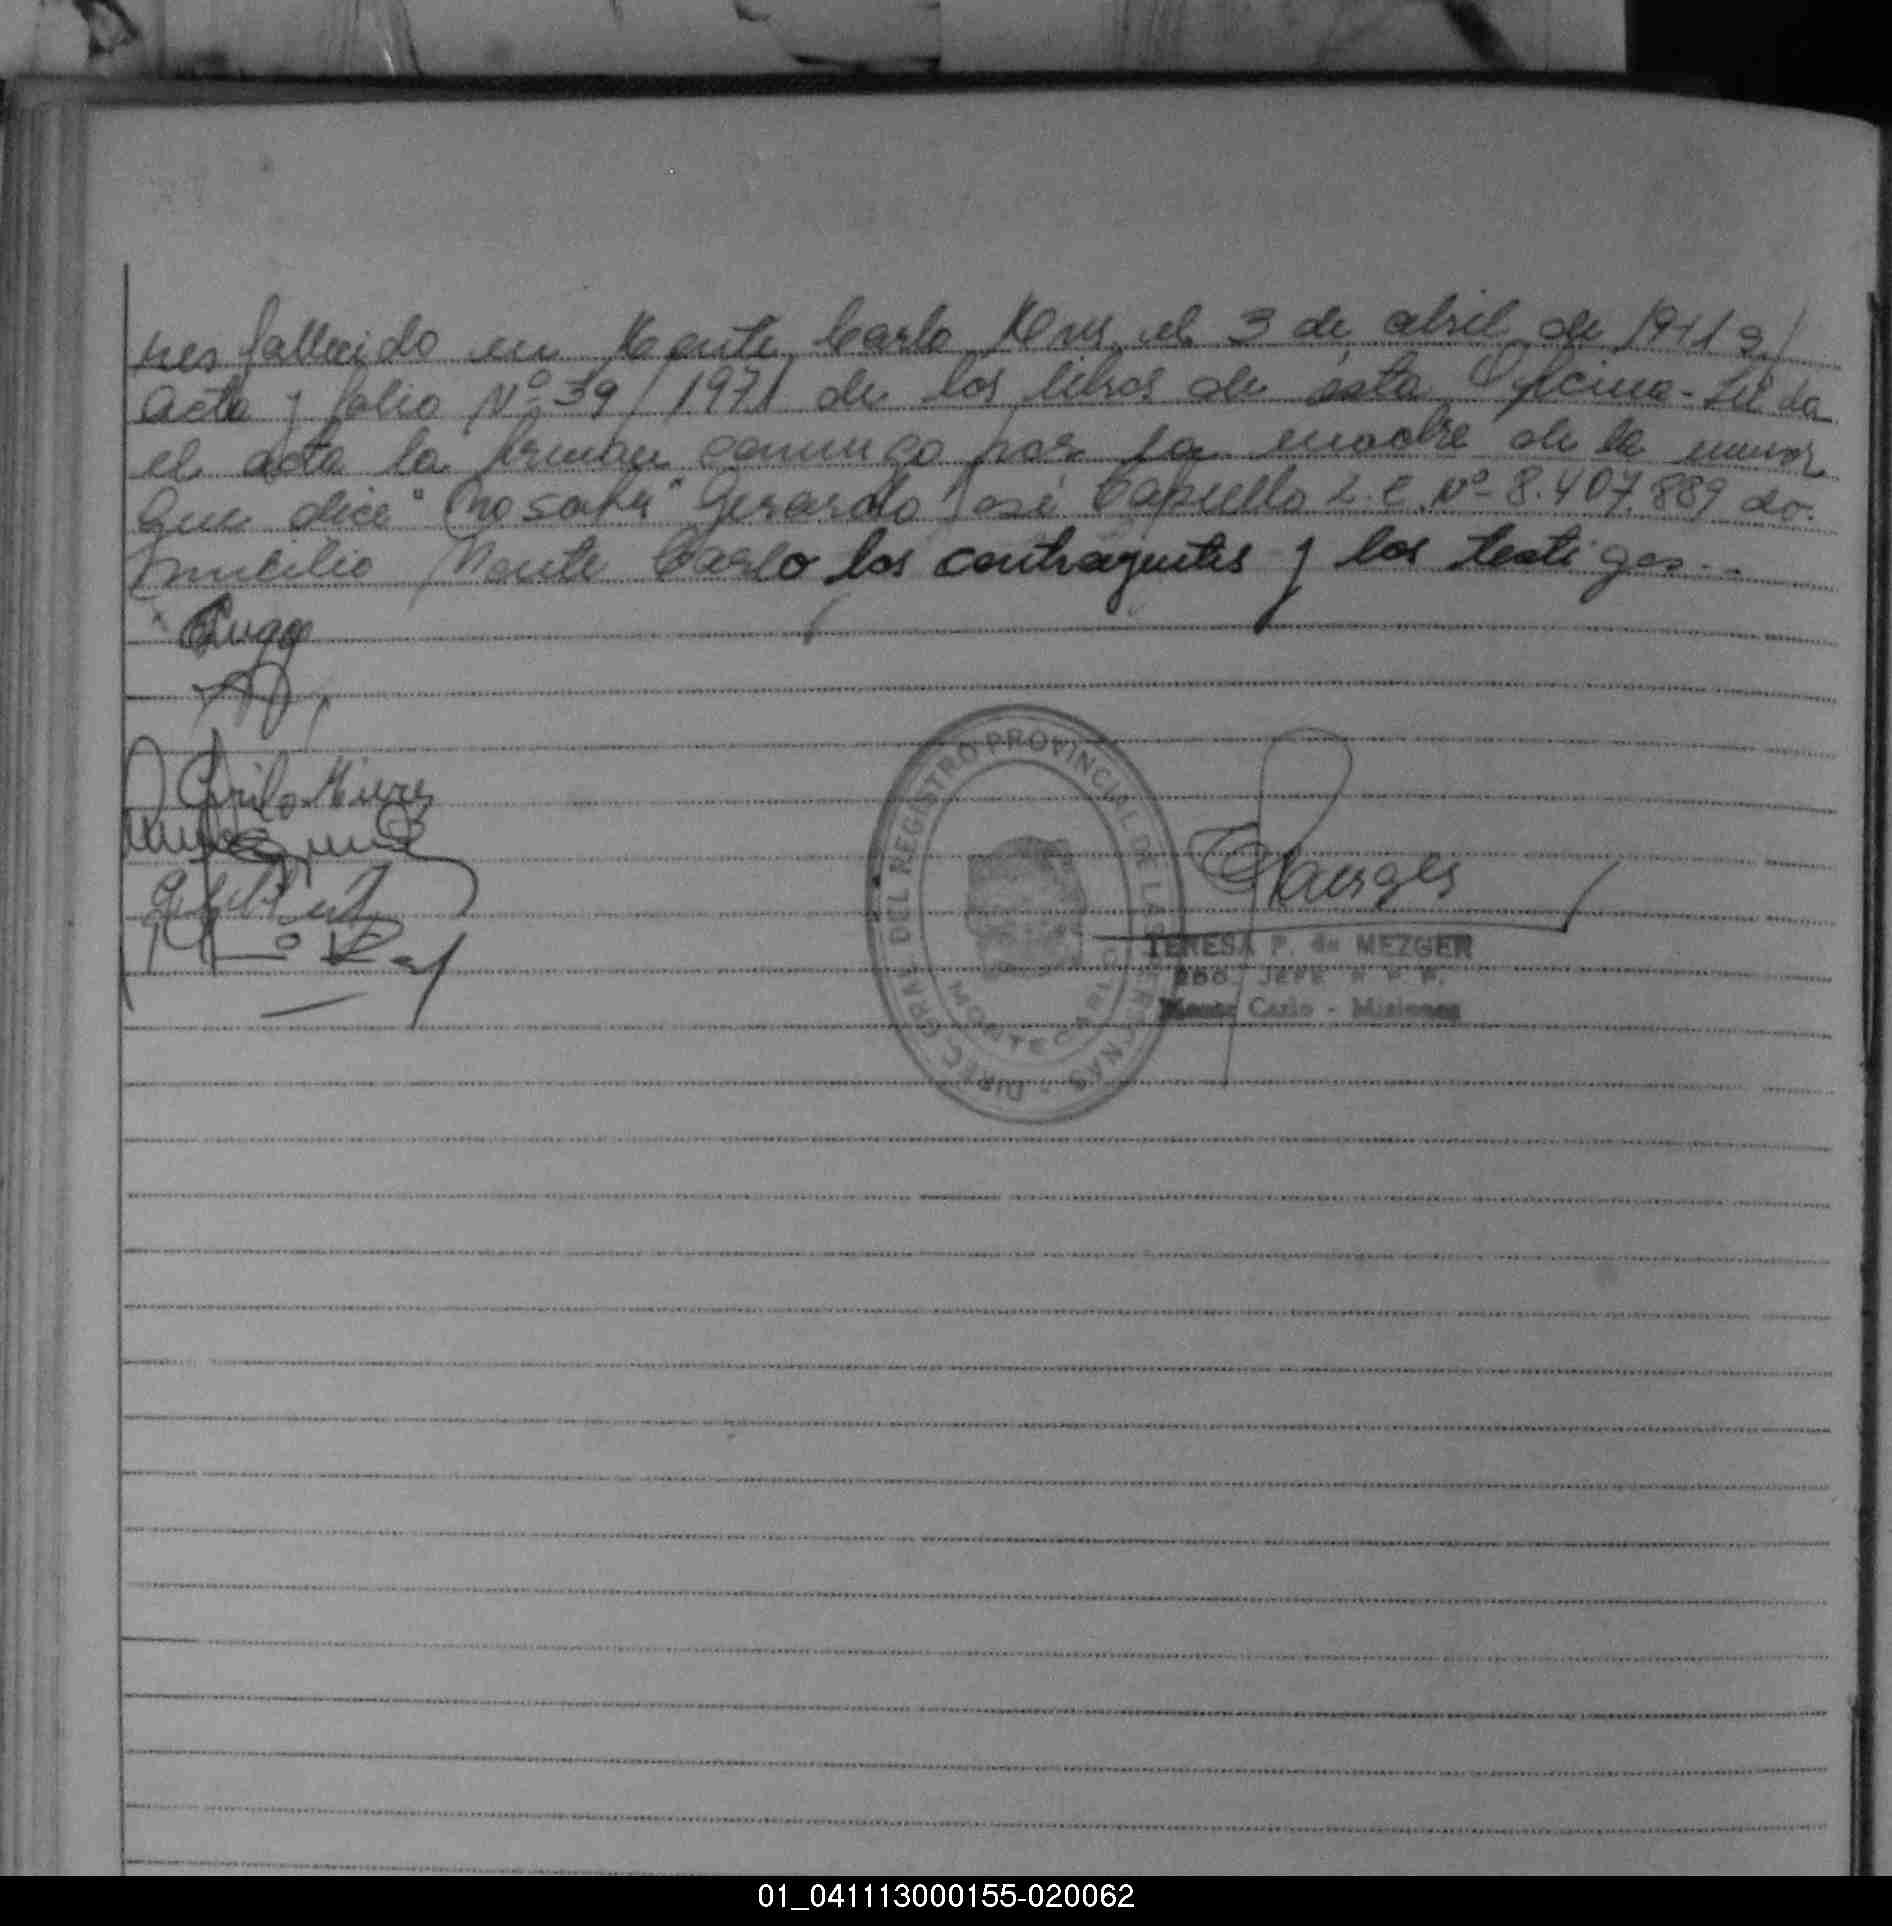 nes fallecido en Monte Carlo Mnes el 3 de abril de 1971 a/
acta y folio Nº 39/1971 de los libros de ésta Oficina - Leida
el acta la firman conmigo por la madre de la menor
que dice "no sabe" Gerardo José Capuello L.E. Nº 8.407.889 do-
micilio Monte Carlo los contrayentes y los testigos--
Lugo
Cirilo
TERESA P. de MEZGER
2DO. JEFE R P P.
Monte Carlo - Misiones
DIREC. GRAL. DEL REGISTRO PROVINCIAL DE LAS PERSONAS
MONTECARLO
01_041113000155-020062